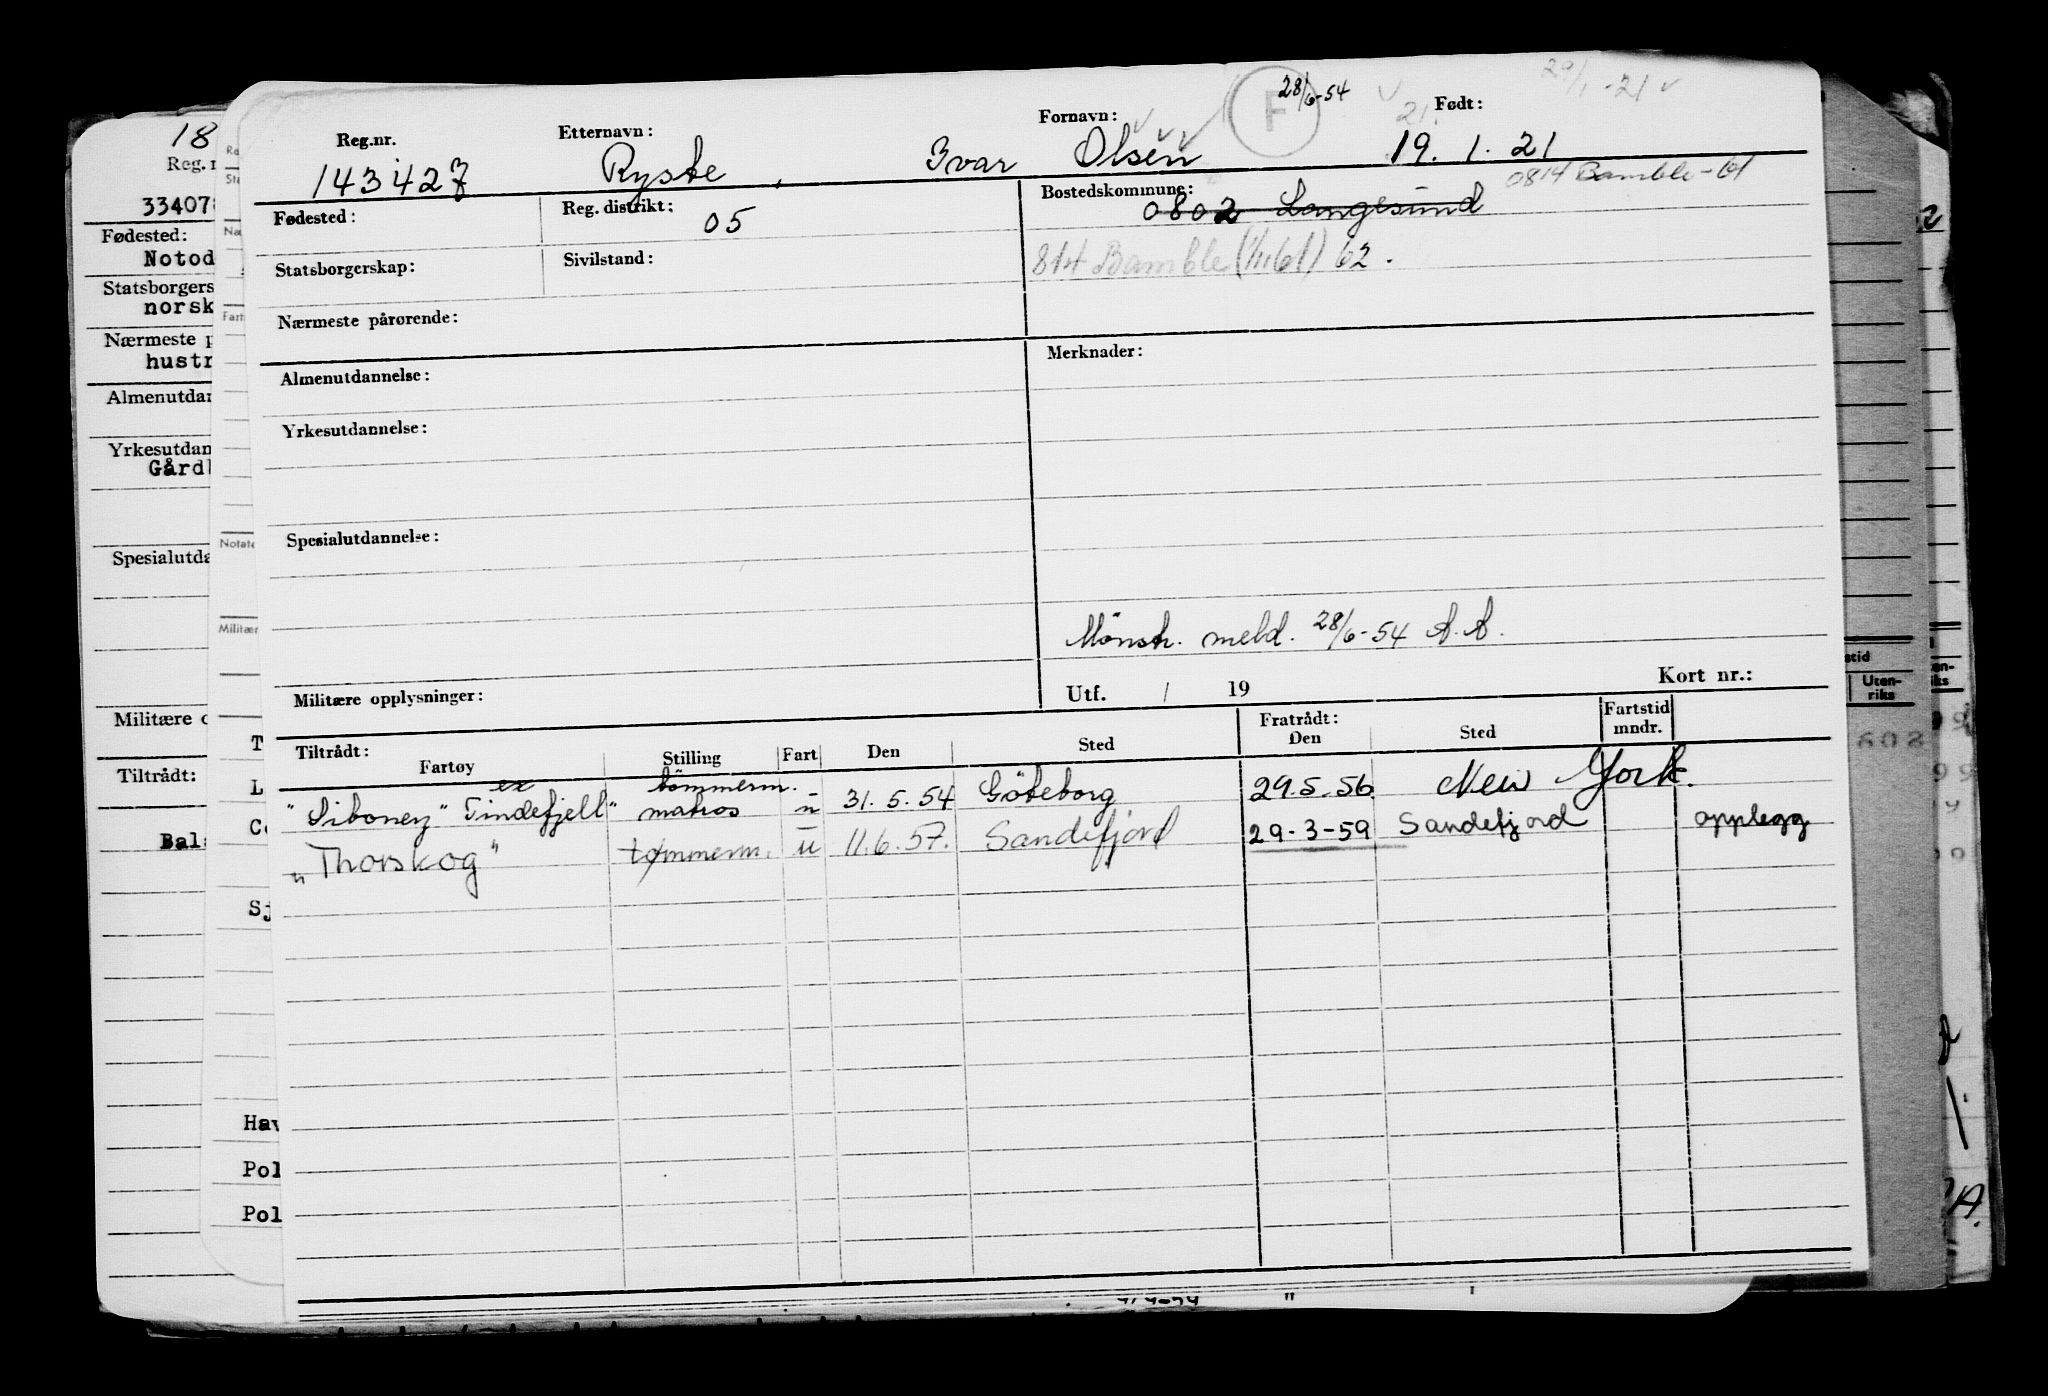 28/6-54
29/1-21
21.
F
Reg.nr. Etternavn: Fornavn: Født:
143427 Ryste, Ivar Olsen 19. 1. 21
Fødested: Reg. distrikt: 05 Bostedskommune: 0814 Bamble-61
0802 Langesund
Statsborgerskap: Sivilstand: 814 Bamble (1/1.61) 62.
Nærmeste pårørende:
Almenutdannelse: Merknader:
Yrkesutdannelse:
Spesialutdannelse:
Mönstr. meld. 28/6-54 A.A.
Militære opplysninger: Utf. / 19 Kort nr.:
Tiltrådt: Fratrådt: Fartstid
Fartøy Stilling Fart Den Sted Den Sted mndr.
ex tömmerm.
"Siboney" Tindefjell" matros u 31. 5. 54 Göteborg 29.5.56. New York.
"Thorskog" tømmerm. u 11.6.57. Sandefjord 29-3-59 Sandefjord opplegg
18
Reg.n
33407
Fødested:
Notod
Statsborgers
norsk
Nærmeste p
hustr
Almenutdan
Yrkesutdan
Gårdb
Spesialutda
Militære o
Tiltrådt:
Bal
Fart
Notate
Militær
T
L
Co
Sj
Hav
Pol
Pol
stid
Uten-
riks
602